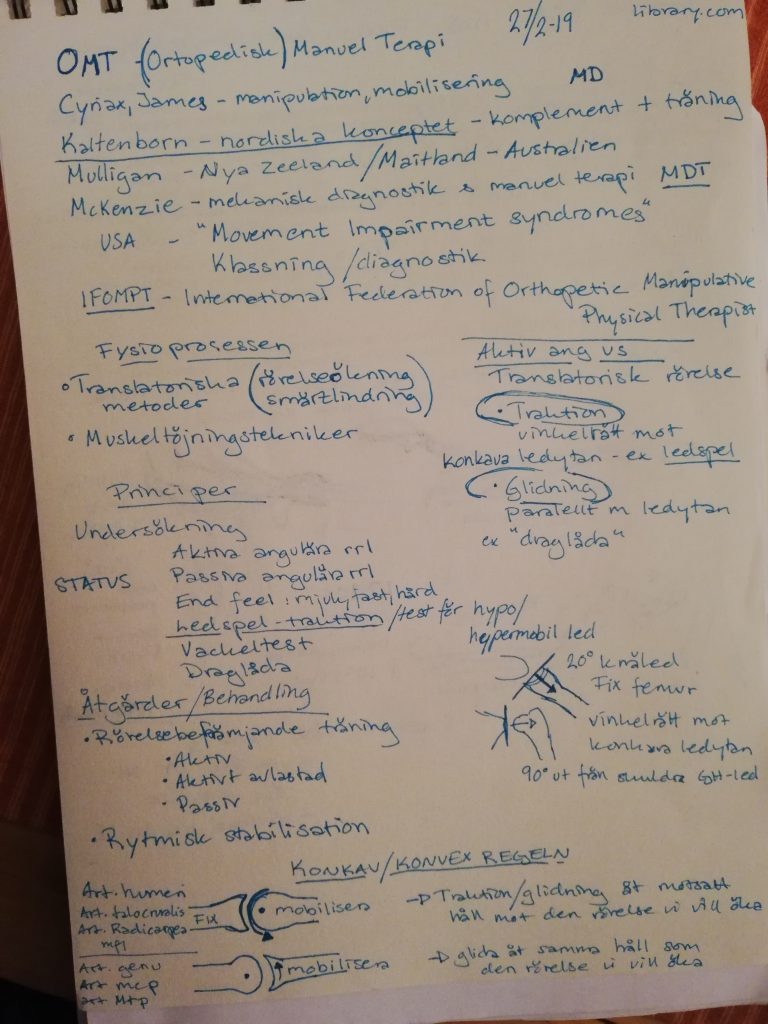 27/2-19
library.com
OMT - (Ortopedisk) Manuel Terapi
Cyriax, James - manipulation, mobilisering MD
Kaltenborn - nordiska konceptet - komplement + träning
Mulligan - Nya Zeeland / Maitland - Australien
McKenzie - mekanisk diagnostik & manuel terapi MDT
USA - "Movement Impairment syndromes"
Klassning / diagnostik
IFOMPT - International Federation of Orthopetic Manipulative
Physical Therapist
Fysioprosessen
• Translatoriska metoder (rörelseökning smärtlindring)
• Muskeltöjningstekniker
Aktiv ang us
Translatorisk rörelse
• Traktion
vinkelrätt mot
konkava ledytan - ex ledspel
• Glidning
paralellt m ledytan
ex "draglåda"
Principer
Undersökning
Aktiva angulära rrl
STATUS Passiva angulära rrl
End feel: mjuk, fast, hård
Ledspel - traktion / test för hypo/
hypermobil led
Vackeltest
Draglåda
20° knäled
Fix femur
vinkelrätt mot
konkava ledytan
90° ut från skuldra GH-led
Åtgärder / Behandling
• Rörelsebefrämjande träning
• Aktiv
• Aktivt avlastad
• Passiv
• Rytmisk stabilisation
KONKAV/KONVEX REGELN
Art. humeri
Art. talocruralis
Art. Radicarpea
mp1
FIX
mobilisera
→ Traktion/glidning åt motsatt
håll mot den rörelse vi vill öka
Art. genu
Art mcp
art Mtp
mobilisera
→ glida åt samma håll som
den rörelse vi vill öka